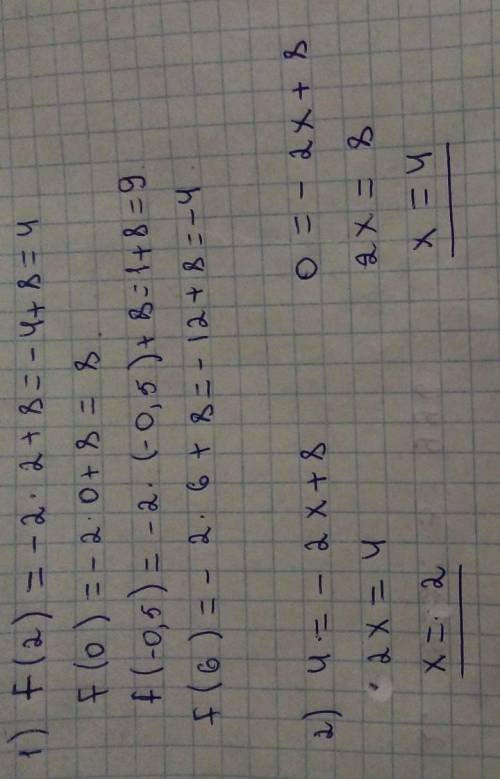 1) f(2) = -2·2+8 = -4+8 = 4
f(0) = -2·0+8 = 8.
f(-0,5) = -2·(-0,5)+8 = 1+8 = 9.
f(6) = -2·6+8 = -12+8 = -4.
2) 4 = -2x+8
2x = 4
x = 2
0 = -2x+8
2x = 8
x = 4